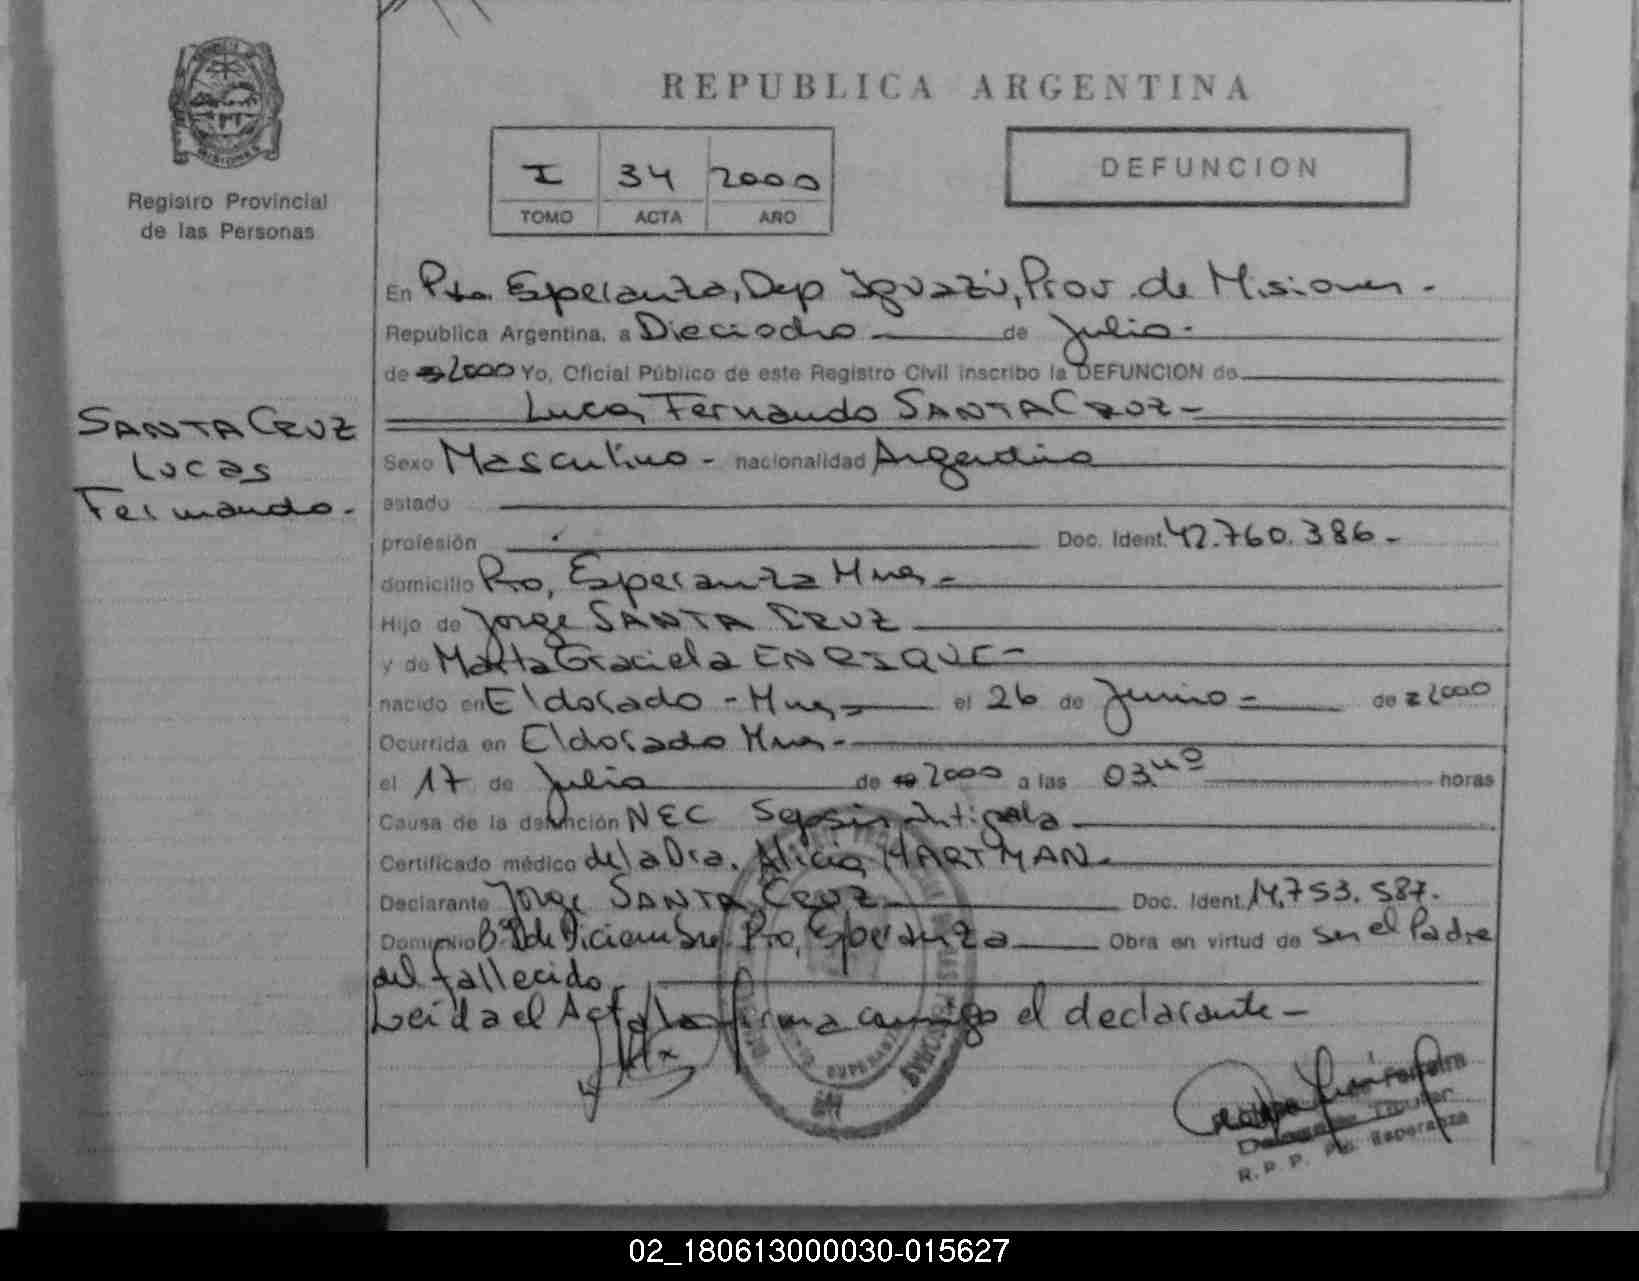 MISIONES
Registro Provincial
de las Personas
REPUBLICA ARGENTINA
I 34 2000
TOMO ACTA AÑO
DEFUNCION
En Pto. Esperanza, Dep Iguazú, Prov. de Misiones -
República Argentina, a Dieciocho de Julio -
de 2000 Yo, Oficial Público de este Registro Civil inscribo la DEFUNCION de
Lucas Fernando SANTA CRUZ -
SANTA CRUZ
Lucas
Fernando -
Sexo Masculino - nacionalidad Argentina
estado
profesión Doc. Ident. 42.760.386 -
domicilio Pto, Esperanza Mnes -
Hijo de Jorge SANTA CRUZ
y de Marta Graciela ENRIQUE -
nacido en Eldorado - Mnes - el 26 de Junio - de 2000
Ocurrida en Eldorado Mnes -
el 17 de Julio de 2000 a las 03,40 horas
Causa de la defunción NEC Sepsis
Certificado médico de la Dra. Alicia HARTMAN -
Declarante Jorge SANTA CRUZ - Doc. Ident. 14.753.587 -
Domicilio de Diciembre Pto, Esperanza Obra en virtud de ser el Padre
del fallecido
Leída el Acta la firma conmigo el declarante -
Ferreira
Delegado Titular
R. P. P. Pto. Esperanza
02_180613000030-015627